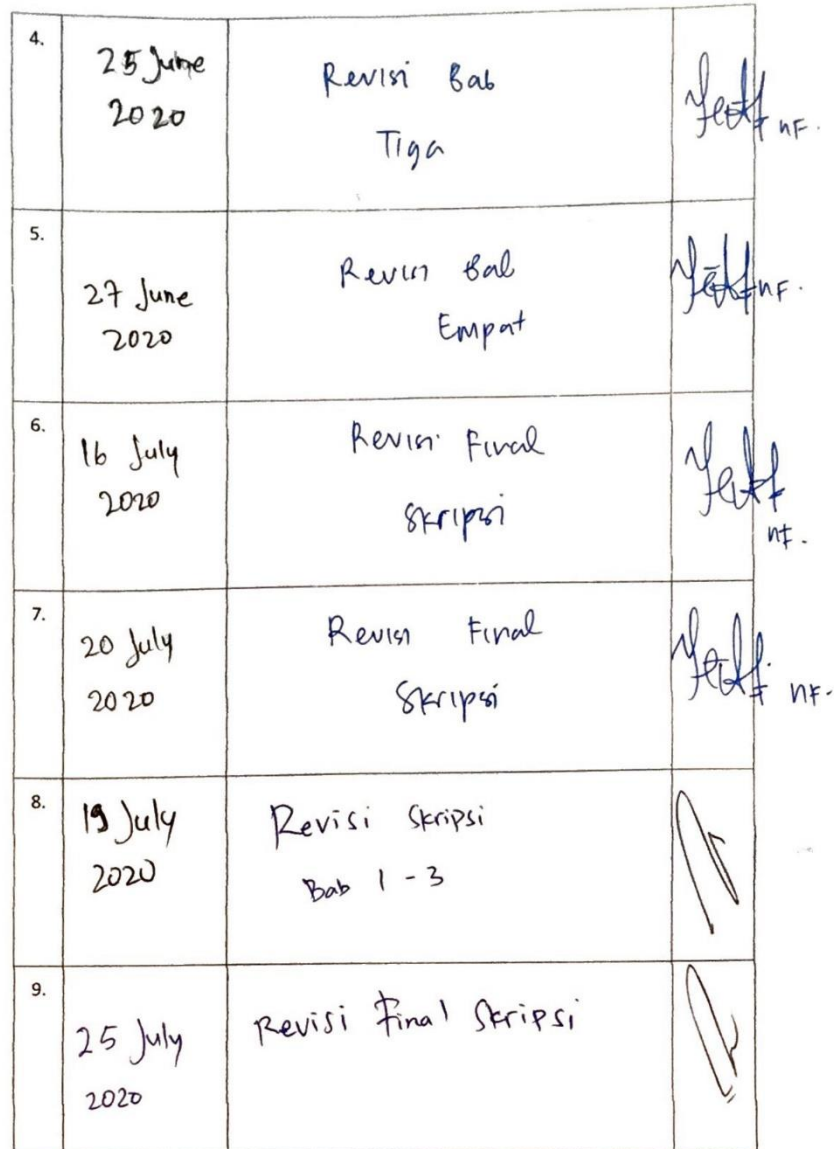 4.
25 June
2020
Revisi Bab
Tiga
nF.
5.
27 June
2020
Revisi Bab
Empat
nF.
6.
16 July
2020
Revisi Final
Skripsi
nF.
7.
20 July
2020
Revisi Final
Skripsi
nF.
8.
19 July
2020
Revisi Skripsi
Bab 1 - 3
9.
25 July
2020
Revisi Final Skripsi